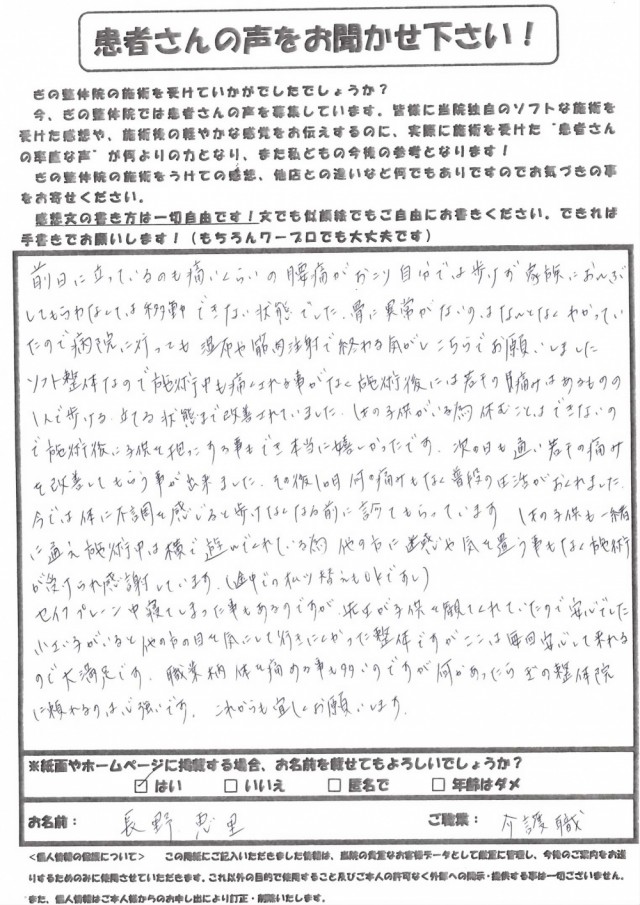 患者さんの声をお聞かせ下さい！
ぎの整体院の施術を受けていかがでしたでしょうか？
今、ぎの整体院では患者さんの声を募集しています。皆様に当院独自のソフトな施術を
受けた感想や、施術後の軽やかな感覚をお伝えするのに、実際に施術を受けた“患者さん
の率直な声”が何よりの力となり、また私どもの今後の参考となります！
ぎの整体院の施術をうけての感想、他店との違いなど何でもありですのでお気づきの事
をお寄せください。
感想文の書き方は一切自由です！文でも似顔絵でもご自由にお書きください。できれば
手書きでお願いします！（もちろんワープロでも大丈夫です）
前日に立っているのも痛いくらいの腰痛がおこり自分では歩けず家族におんぶ
してもらわなくては移動できない状態でした。骨に異常がないのはなんとなくわかってい
たので病院に行っても湿布や筋肉注射で終わる気がしこちらでお願いしました
ソフト整体なので施術中も痛くされる事がなく施術後には若干の痛みはあるものの
1人で歩ける、立てる状態まで改善されていました。1才の子供がいる為休むことはできないの
で施術後に子供を抱っこする事もでき本当に嬉しかったです。次の日も通い若干の痛み
を改善してもらう事が出来ました。その後10日何の痛みもなく普段の生活がおくれました。
今では体に不調を感じると歩けなくなる前に診てもらっています 1才の子供も一緒
に通え施術中は横で遊んでくれている為 他の方に迷惑や気を遣う事もなく施術
が受けられ感謝しています。(途中でのオムツ替えもOKですし)
セイフプレーン中寝てしまった事もあるのですが、先生が子供を観てくれていたので安心でした
小さい子がいると他の方の目を気にして行きにくかった整体ですがここは毎回安心して来れる
ので大満足です。職業柄 体を痛める事も多いのですが何かあったらぎの整体院
に頼れるのは心強いです。これからも宜しくお願いします。
※紙面やホームページに掲載する場合、お名前を載せてもよろしいでしょうか？
☑はい □いいえ □匿名で □年齢はダメ
お名前： 長野 恵里 ご職業： 介護職
<個人情報の保護について> この用紙にご記入いただきました情報は、当院の貴重なお客様データとして厳重に管理し、今後のご案内をお送
りするためのみに使用させていただきます。これ以外の目的で使用すること及びご本人の許可なく外部への開示・提供する事は一切ございません。
また、個人情報はご本人様からのお申し出により訂正・削除いたします。